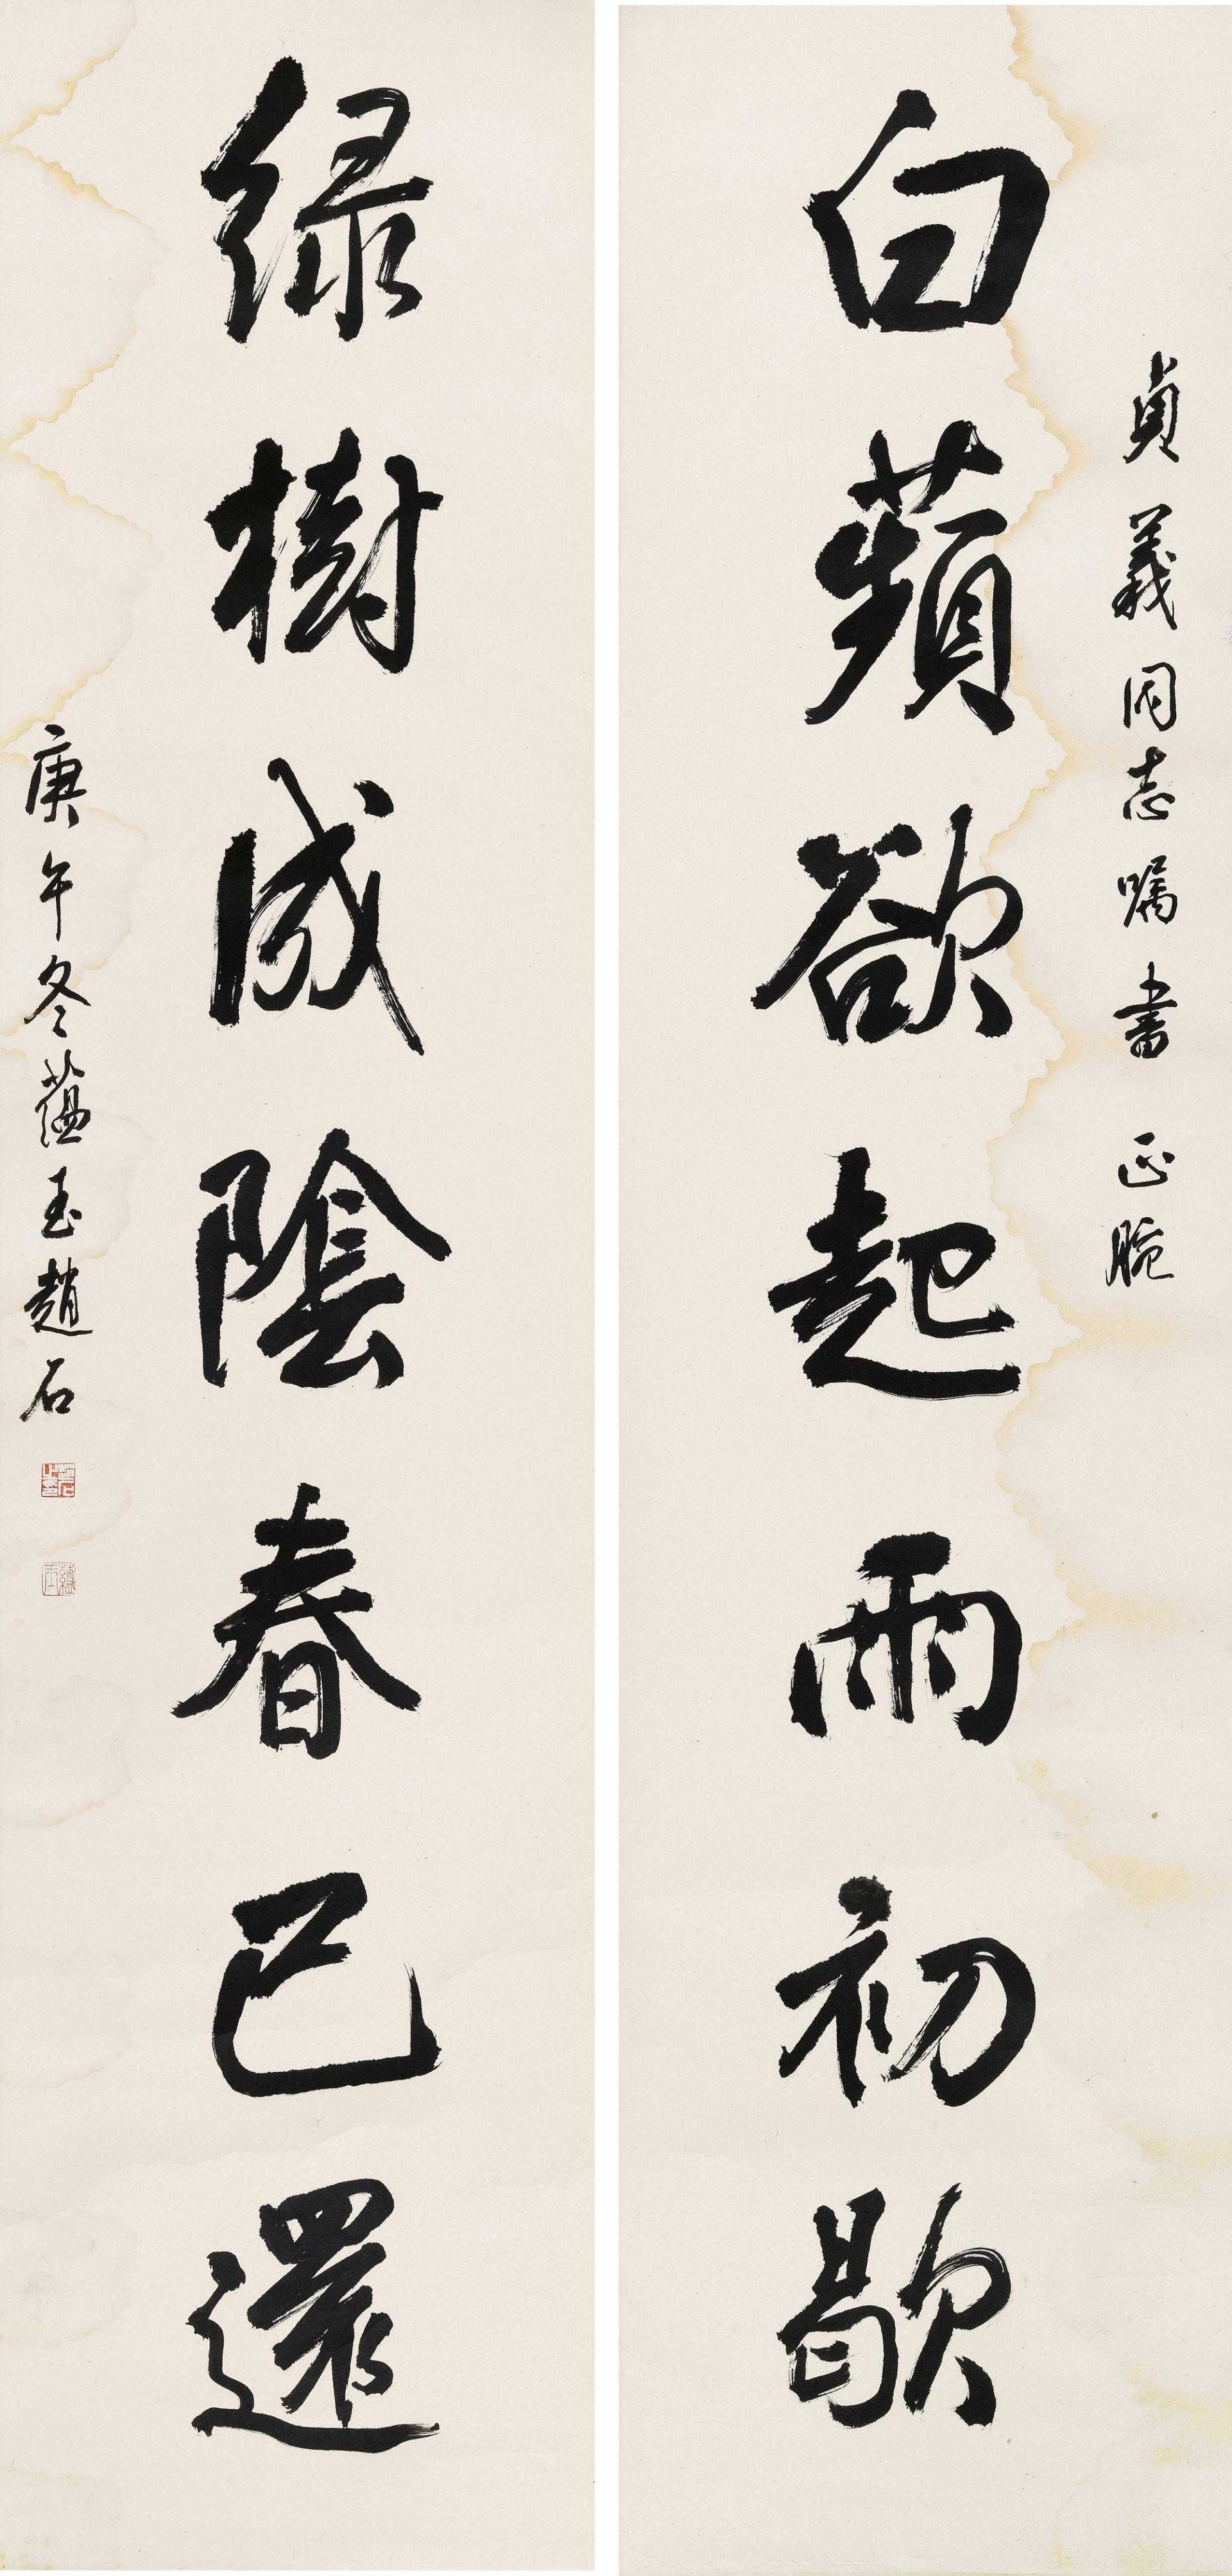 貞義同志嘱書 正腕
白蘋欲起雨初歇
綠樹成陰春已還
庚午冬蘊玉趙石